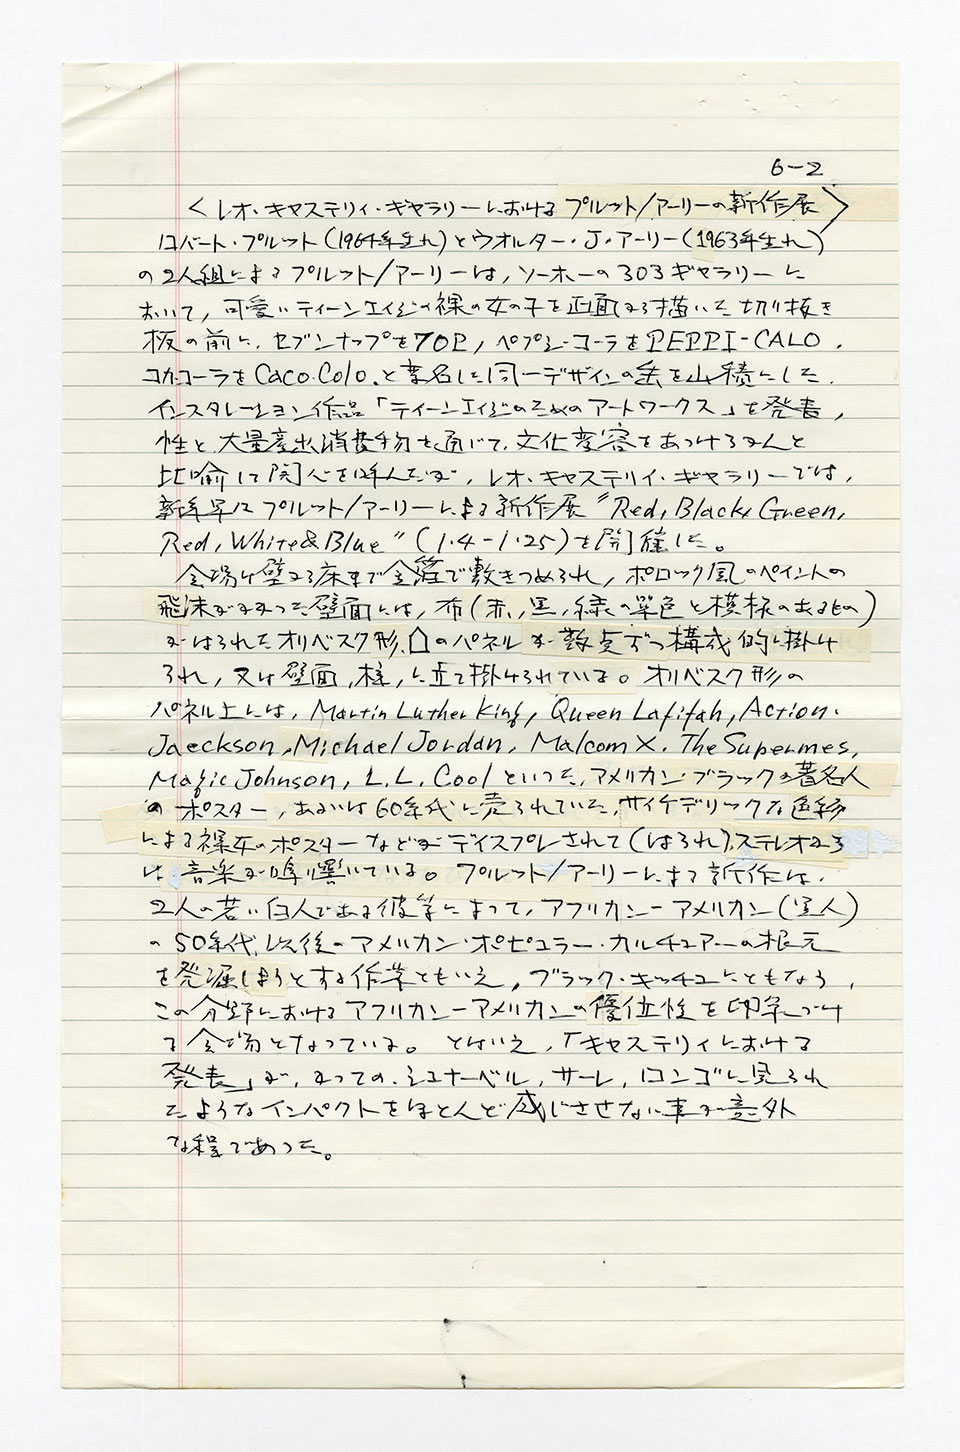 6-2
〈レオ・キャステリィ・ギャラリーにおける プルット/アーリーの新作展〉
ロバート・プルット(1964年生れ)とウオルター・J・アーリー(1963年生れ)
の2人組によるプルット/アーリーは,ソーホーの303ギャラリーに
おいて,可愛いティーンエイジの裸の女の子を正面から描いた切り抜き
板の前に,セブンナップを7OP,ペプシ・コーラをPEPPI-CALO,
コカコーラをCaco.Colo.と命名した同一デザインの缶を山積にした,
インスタレーション作品「ティーンエイジのためのアートワークス」を発表,
性と,大量産出消費物を通じて,文化変容をあつけらかんと
比喩して関心を呼んだが,レオ・キャステリィ・ギャラリーでは,
新年早にプルット/アーリーによる新作展〝Red, Black, Green,
Red, White&Blue〟(1・4-1・25)を開催した。
会場は壁から床まで金箔で敷きつめられ,ポロック風のペイントの
飛沫がかかった壁面には,布(赤,黒,緑の単色と模様のあるもの)
がはられたオリベスク形のパネルが数点ずつ構成的に掛け
られ,又は壁面,様,に立て掛けられている。オリベスク形の
パネル上には,Martin Luther King, Queen Lafifah, Action.
Jaeckson, Michael Jordan, Malcom X. The Supermes,
Magic Johnson, L.L. Cool といった,アメリカン・ブラックの著名人
のポスター,あるいは60年代に売られていた,サイケデリックな色彩
による裸女のポスターなどがディスプレされて(はられ),ステレオから
は音楽が鳴り響いている。プルット/アーリーによる新作は,
2人の若い白人である彼等によって,アフリカン-アメリカン(黒人)
の50年代以後のアメリカン・ポピュラー・カルチュアーの根元
を発掘しようとする作業ともいえ,ブラック・キッチュにともなう,
この分野におけるアフリカン-アメリカンの優位性を印象づけ
る会場となっている。とはいえ,「キャステリィにおける
発表」が,かつての,シュナーベル,サーレ,ロンゴに見られ
たようなインパクトをほとんど感じさせない事が意外
な程であった。